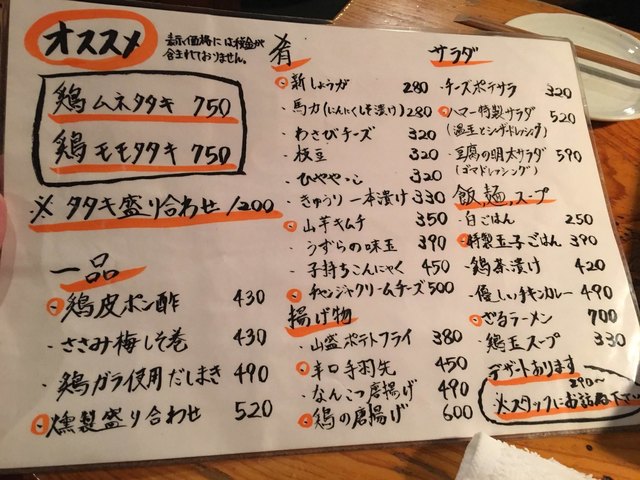 オススメ
表示価格には税金が
含まれておりません。
鶏ムネタタキ 750
鶏モモタタキ 750
※タタキ盛り合わせ 1200
一品
鶏皮ポン酢 430
・ささみ梅しそ巻 430
・鶏ガラ使用だしまき 490
・燻製盛り合わせ 520
肴
・新しょうが 280
・馬力(にんにくしそ漬け) 280
・わさびチーズ 320
・枝豆 320
・ひややっこ 320
・きゅうり一本漬け 330
・山芋キムチ 350
・うずらの味玉 390
・子持ちこんにゃく 450
・チャンジャクリームチーズ 500
揚げ物
・山盛ポテトフライ 380
・辛口手羽先 450
・なんこつ唐揚げ 490
・鶏の唐揚げ 600
サラダ
・チーズポテサラ 320
・ハマー特製サラダ 520
(温玉とシーザードレッシング)
・豆腐の明太サラダ 590
(ゴマドレッシング)
飯、麺、スープ
・白ごはん 250
・特製玉子ごはん 390
・鶏茶漬け 420
・優しいチキンカレー 490
・ざるラーメン 700
・鶏玉スープ 330
デザートあります
290〜
※スタッフにお訪ね下さい